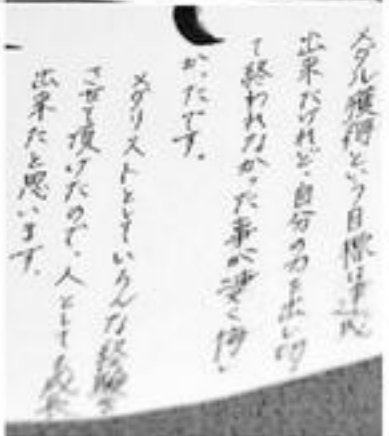 メダル獲得という目標は達成
出来たけれど、自分の力を出し切っ
て終われなかった事が凄く悔し
かったです。
メダリストとしていろんな経験を
させて頂けたので、人としても成長
出来たと思います。